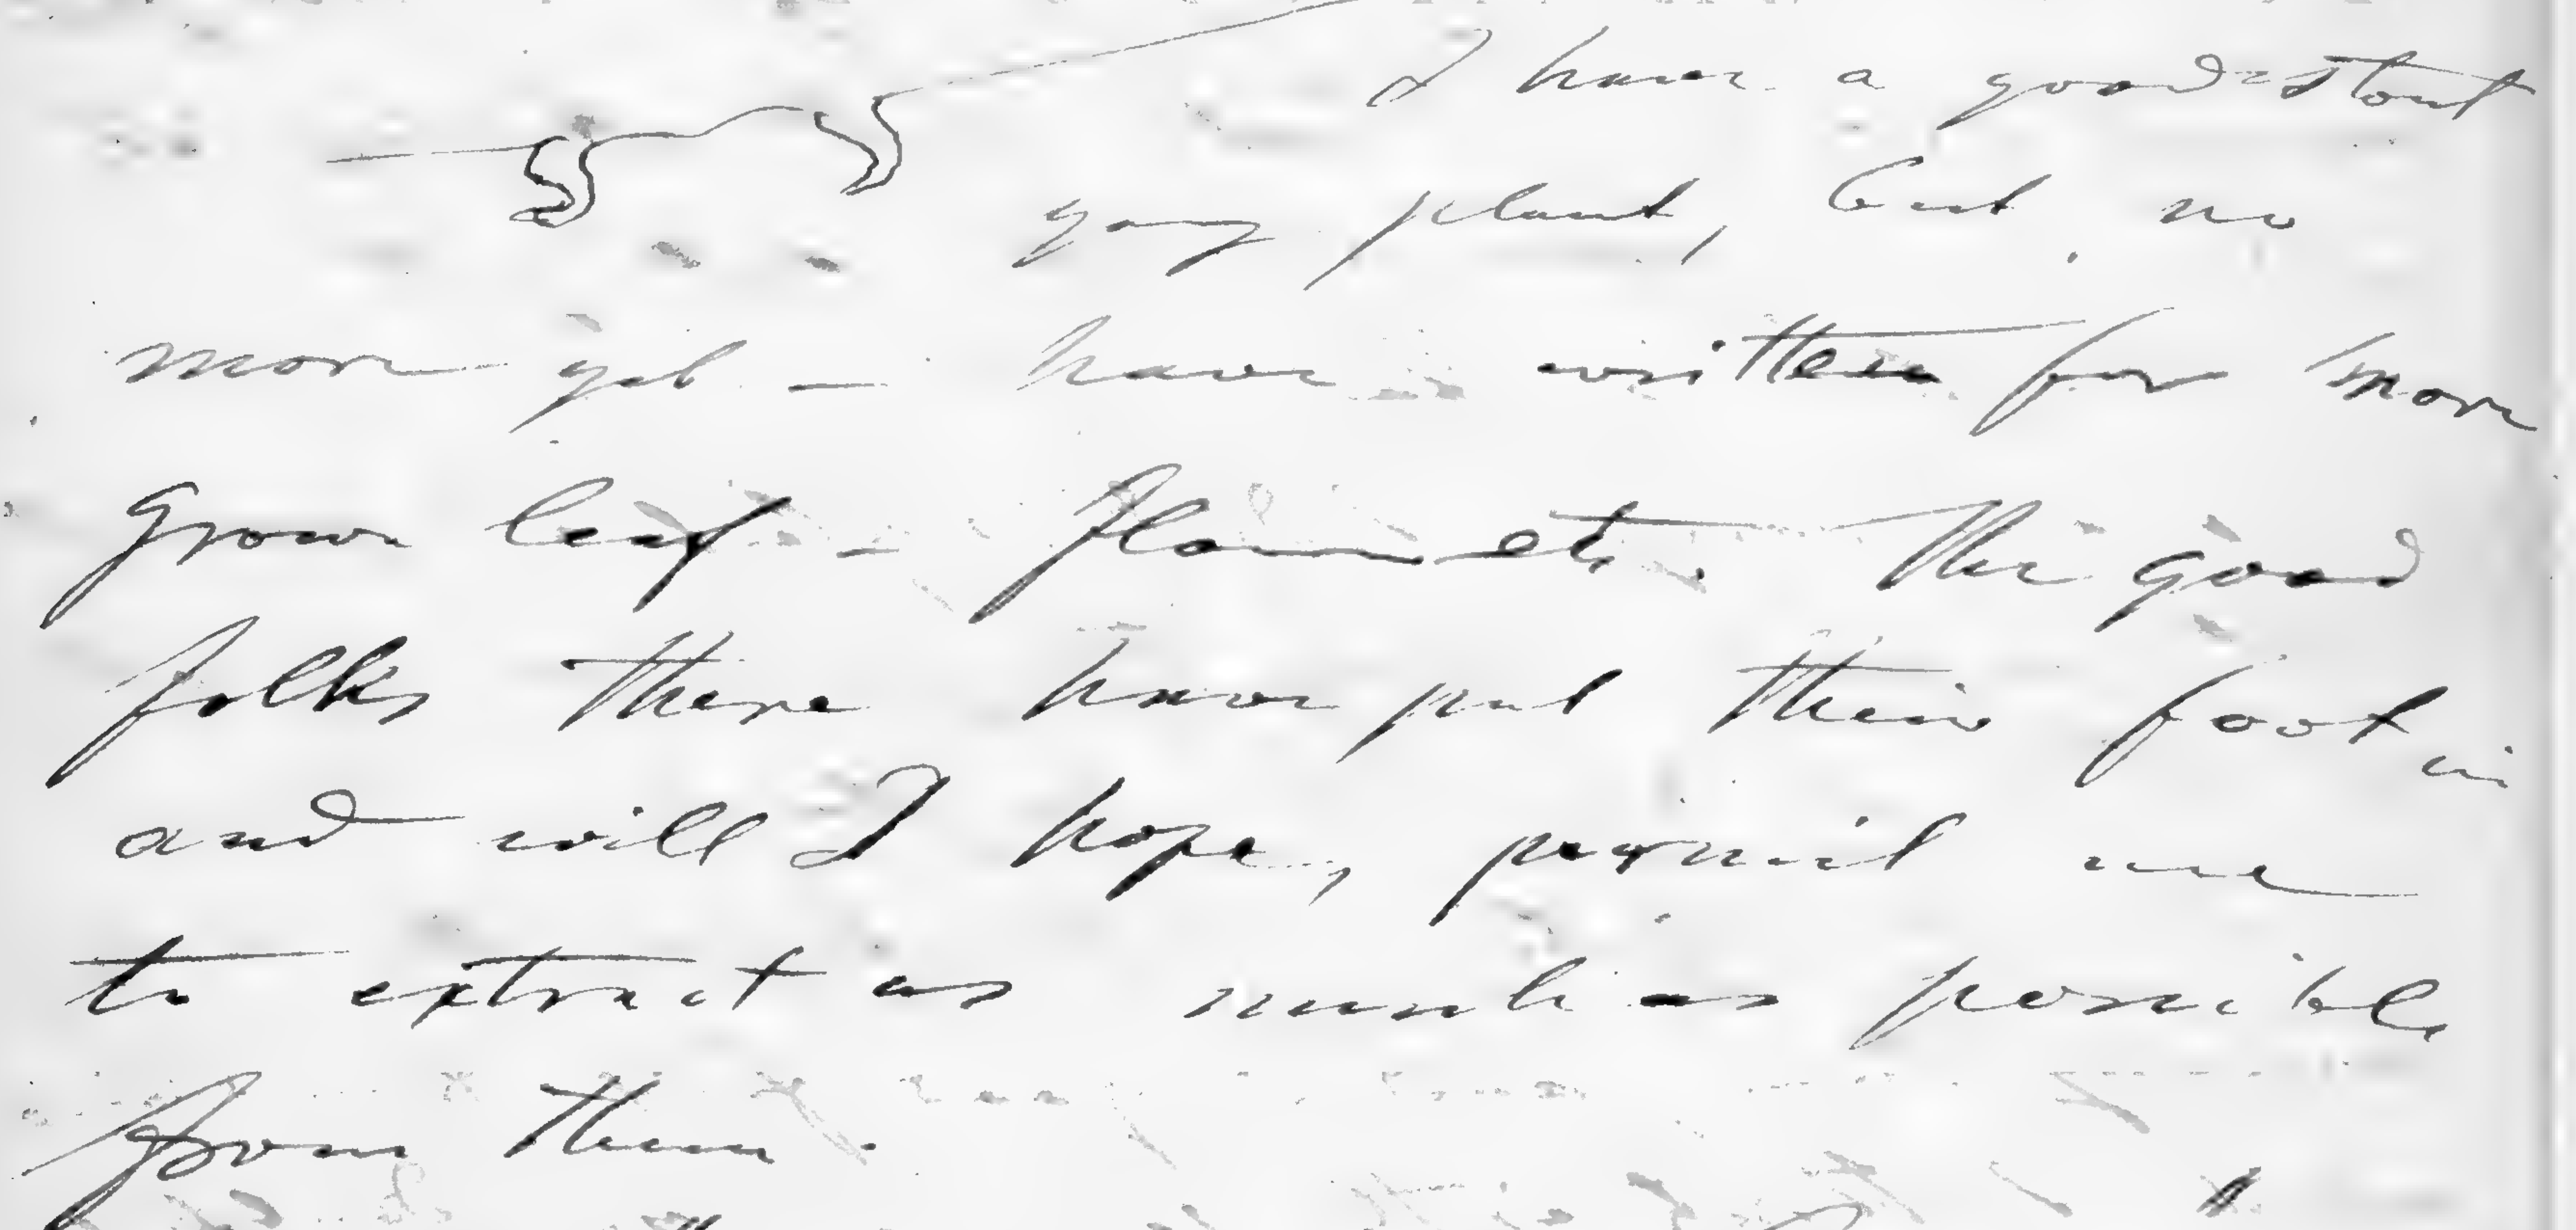 I have a good stout
young plant, but no
more yet — have written for more
grown leaf — flowers etc. The good
folks there have put their foot in
and will I hope, permit me
to extract as much as possible
from them.